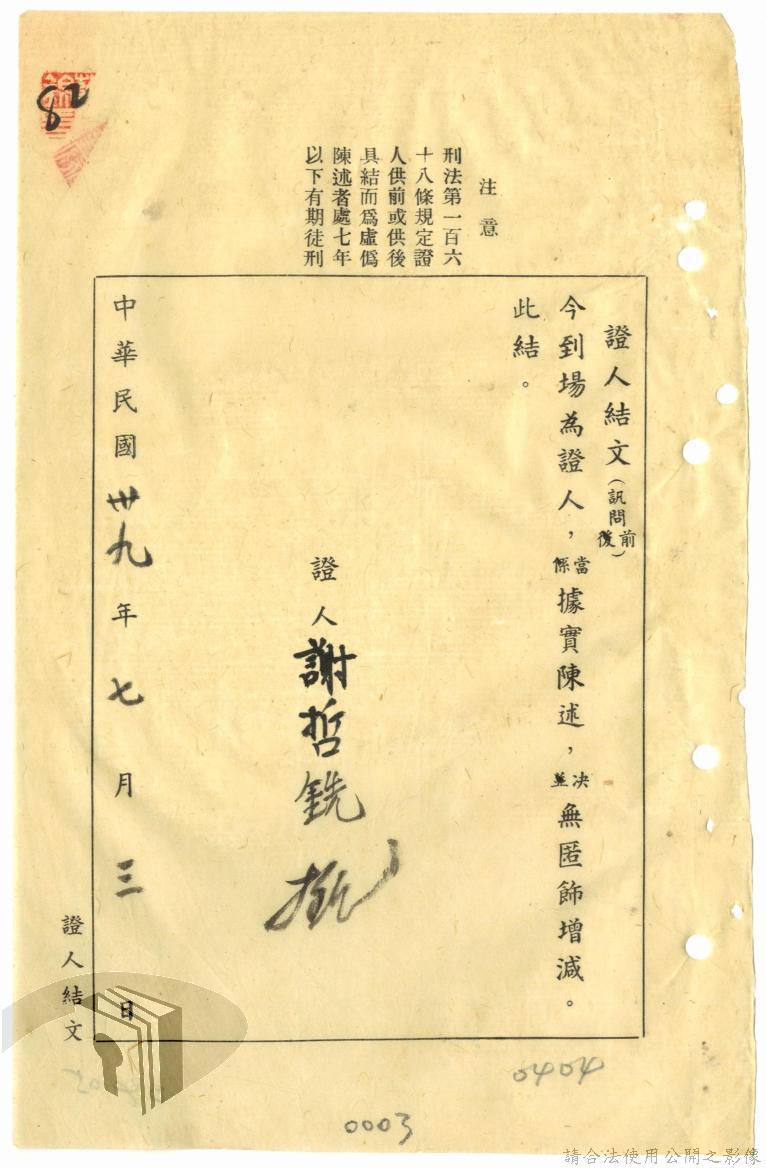 82
注意
刑法第一百六
十八條規定證
人供前或供後
具結而爲虛僞
陳述者處七年
以下有期徒刑
證人結文(訊問前後)
今到場為證人，當係據實陳述，決並無匿飾增減。
此結。
證人 謝哲銑
中華民國卅九年七月三日
證人結文
0404
0003
請合法使用公開之影像